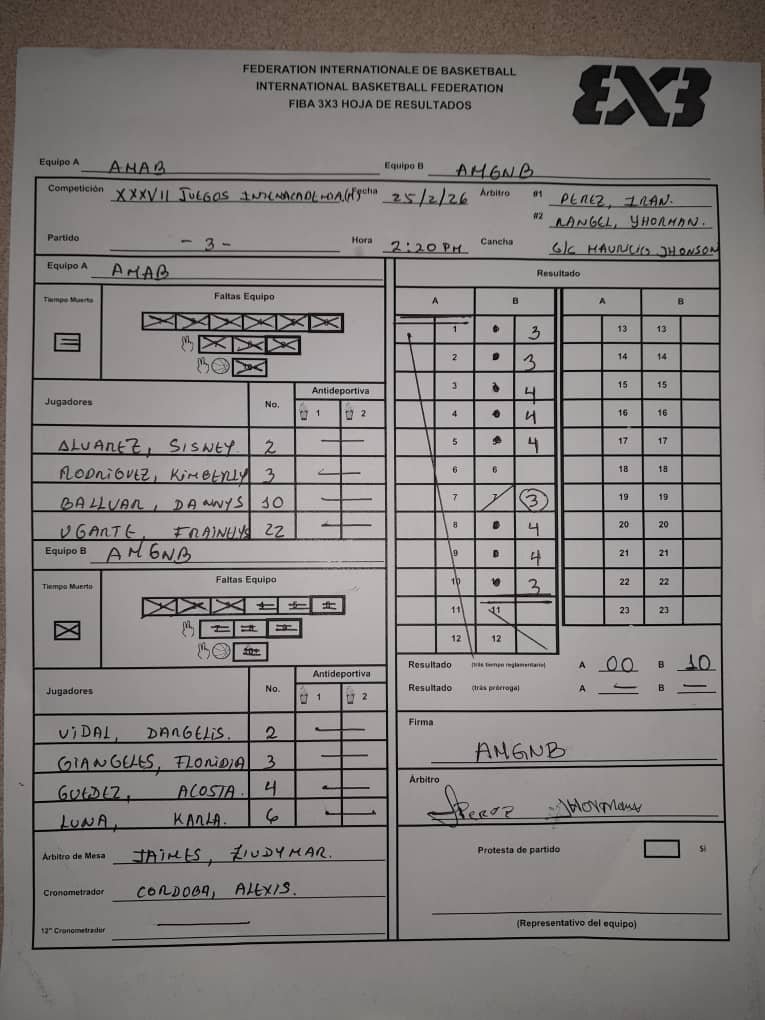 FEDERATION INTERNATIONALE DE BASKETBALL
INTERNATIONAL BASKETBALL FEDERATION
FIBA 3X3 HOJA DE RESULTADOS
3X3
Equipo A AMAB Equipo B AMGNB
Competición XXXVII JUEGOS INTERACADEMIA(F) Fecha 25/2/26 Árbitro #1 PEREZ, IRAN.
#2 RANGEL, YHORMAN.
Partido - 3 - Hora 2:20 PM Cancha G/C MAURICIO JHONSON
Equipo A AMAB
Resultado
Tiempo Muerto Faltas Equipo
A B A B
1 3 13 13
2 3 14 14
3 4 15 15
4 4 16 16
5 4 17 17
6 6 18 18
7 7 3 19 19
8 4 20 20
9 4 21 21
10 3 22 22
11 11 23 23
12 12
Jugadores No. Antideportiva
1 2
ALVAREZ, SISNEY. 2
RODRIGUEZ, KIMBERLY 3
BALLVAR, DANNYS 10
UGARTE, 22
Equipo B AMGNB
Tiempo Muerto Faltas Equipo
Resultado (trás tiempo reglamentario) A 00 B 10
Resultado (trás prórroga) A — B —
Jugadores No. Antideportiva
1 2
VIDAL, DARGELIS. 2
GIANGELES, FLORIDIA 3
GUEDEZ, ACOSTA. 4
LUNA, KARLA. 6
Firma
AMGNB
Árbitro
Perez Yhorman
Árbitro de Mesa JAIMES, ZIUDYMAR.
Cronometrador CORDOBA, ALEXIS.
12" Cronometrador
Protesta de partido Si
(Representativo del equipo)